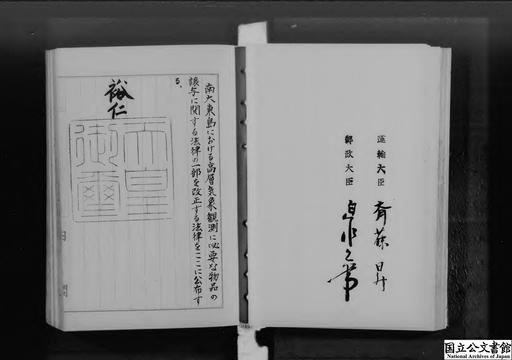 南大東島における高層気象観測に必要な物品の
譲与に関する法律の一部を改正する法律をここに公布す
る。
裕仁
天皇
御璽
運輸大臣
斉藤昇
郵政大臣
国立公文書館
National Archives of Japan